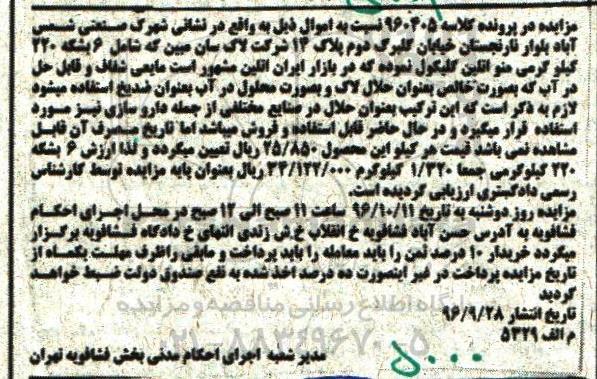 مزایده در پرونده کلاسه ۹۶۰۴۰۵ نسبت به اموال ذیل به واقع در نشانی شهرک صنعتی شمس
آباد بلوار نارنجستان خیابان گلبرگ دوم پلاک ۱۴ شرکت لاک سان مبین که شامل ۶ بشکه ۲۲۰
کیلو گرمی منو اتلین گلیکول نموده که در بازار ایران اتلین مشهور است مایعی شفاف و قابل حل
در آب که بصورت خالص بعنوان حلال لاک و بصورت محلول در آب بعنوان ضدیخ استفاده میشود
لازم به ذکر است که این ترکیب بعنوان حلال در صنایع مختلفی از جمله دارو سازی نیز مورد
استفاده قرار میگیرد و در حال حاضر قابل استفاده و فروش میباشد اما تاریخ مصرف آن قابل
مشاهده نمی باشد قیمت هر کیلو این محصول ۲۵/۸۵۰ ریال تعیین میگردد و لذا ارزش ۶ بشکه
۲۲۰ کیلوگرمی جمعا ۱/۳۲۰ کیلوگرم ۳۴/۱۲۲/۰۰۰ ریال بعنوان پایه مزایده توسط کارشناس
رسمی دادگستری ارزیابی گردیده است.
مزایده روز دوشنبه به تاریخ ۹۶/۱۰/۱۱ ساعت ۱۱ صبح الی ۱۲ صبح در محل اجرای احکام
فشافویه به آدرس حسن آباد فشافویه خ انقلاب خ ش زندی انتهای خ دادگاه فشافویه برگزار
میگردد خریدار ۱۰ درصد ثمن را باید معامله را باید پرداخت و مابقی راظرف مهلت یکماه از
تاریخ مزایده پرداخت در غیر اینصورت ده درصد اخذ شده به نفع صندوق دولت ضبط خواهد
گردید
پایگاه اطلاع رسانی مناقصه و مزایده
تاریخ انتشار ۹۶/۹/۲۸
۰۲۱-۸۸۳۴۹۶۷۰-۵
م الف ۵۳۲۹
مدیر شعبه اجرای احکام مدنی بخش فشافویه تهران
۵۰۰۰